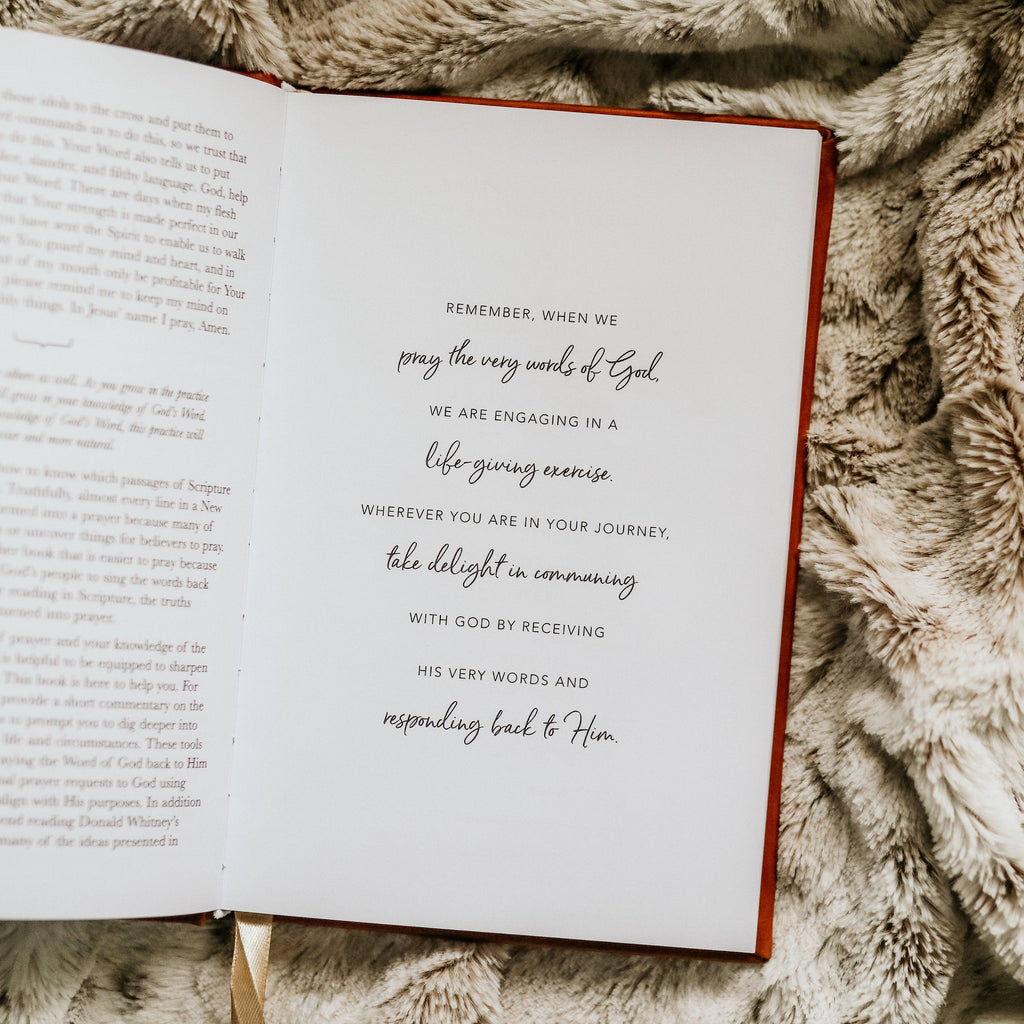 those idols to the cross and put them to
commands us to do this, so we trust that
do this. Your Word also tells us to put
slander, and filthy language. God, help
Your Word. There are days when my flesh
that Your strength is made perfect in our
you have sent the Spirit to enable us to walk
You guard my mind and heart, and in
out of my mouth only be profitable for Your
please remind me to keep my mind on
things. In Jesus' name I pray, Amen.
others as well. As you grow in the practice
grow in your knowledge of God's Word.
knowledge of God's Word, this practice will
and more natural.
how to know which passages of Scripture
Truthfully, almost every line in a New
turned into a prayer because many of
or uncover things for believers to pray.
book that is easier to pray because
God's people to sing the words back
reading in Scripture, the truths
turned into prayer.
prayer and your knowledge of the
is helpful to be equipped to sharpen
This book is here to help you. For
provide a short commentary on the
to prompt you to dig deeper into
life and circumstances. These tools
praying the Word of God back to Him
prayer requests to God using
align with His purposes. In addition
reading Donald Whitney's
many of the ideas presented in
REMEMBER, WHEN WE
pray the very words of God,
WE ARE ENGAGING IN A
life-giving exercise.
WHEREVER YOU ARE IN YOUR JOURNEY,
take delight in communing
WITH GOD BY RECEIVING
HIS VERY WORDS AND
responding back to Him.